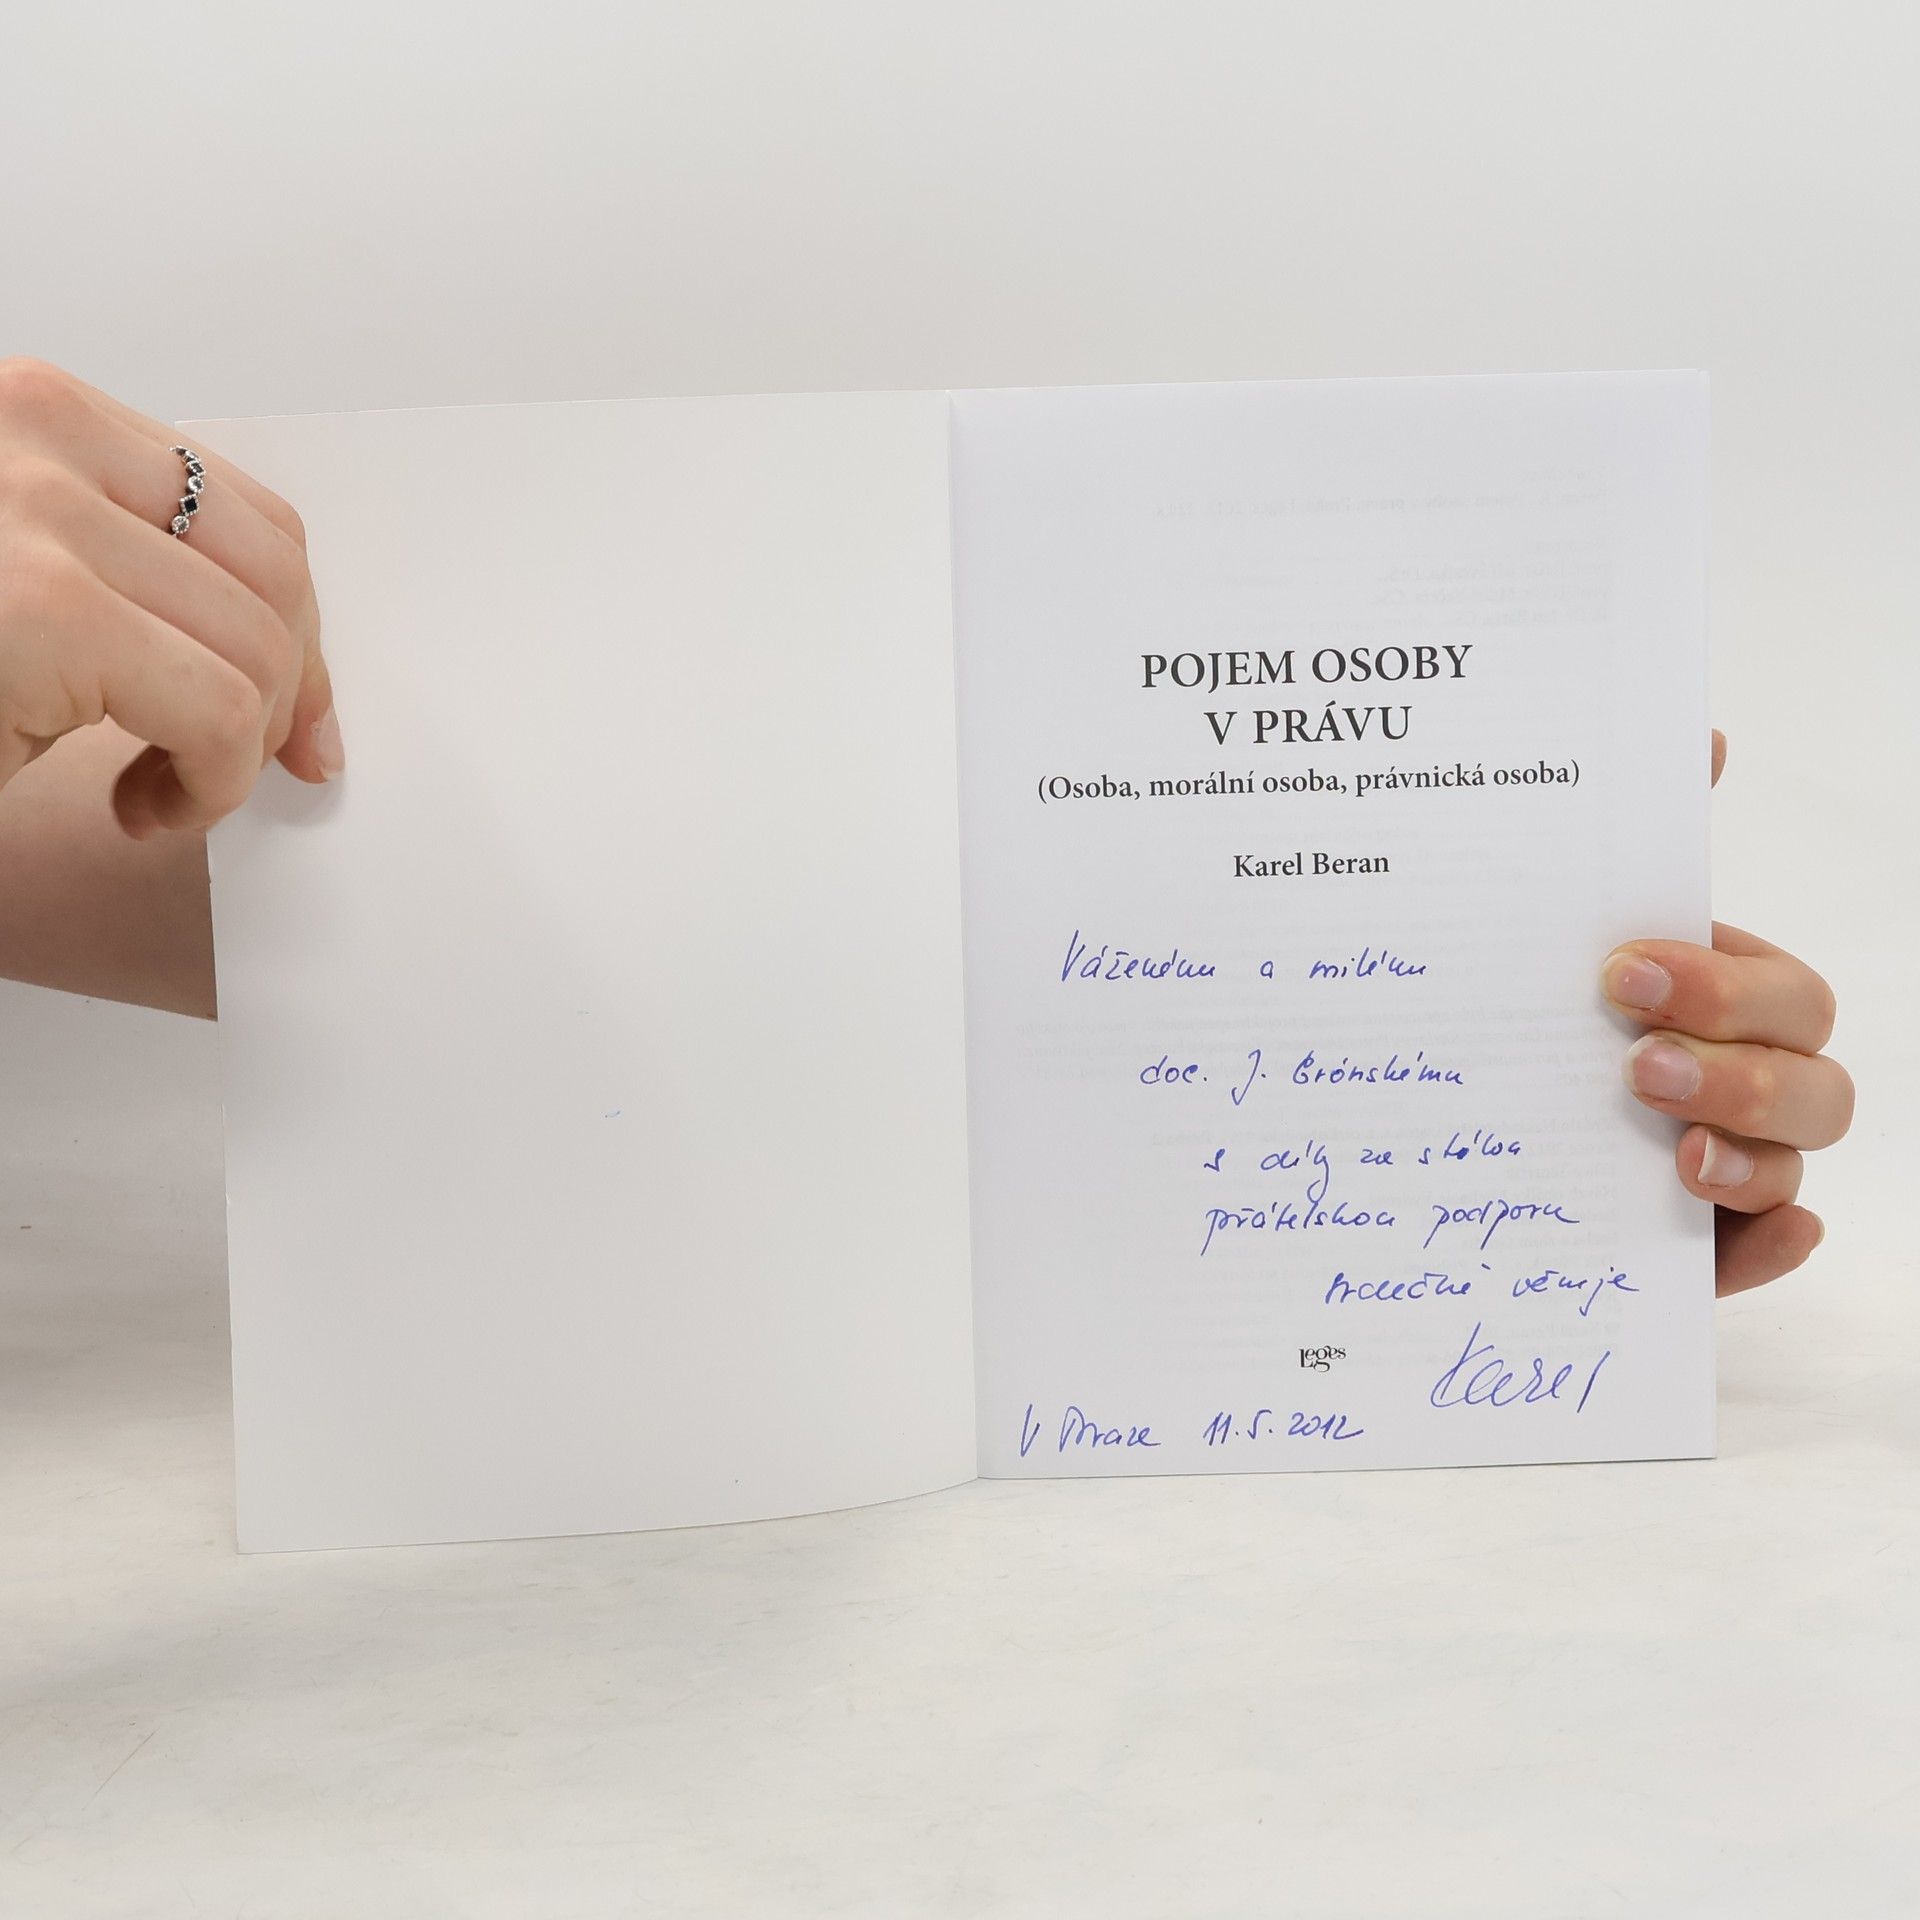 POJEM OSOBY
V PRÁVU
(Osoba, morální osoba, právnická osoba)
Karel Beran
Váženému a milému
doc. J. Grónskému
s díky za stálou
přátelskou podporu
srdečně věnuje
leges
Karel
V Praze 11. 5. 2012